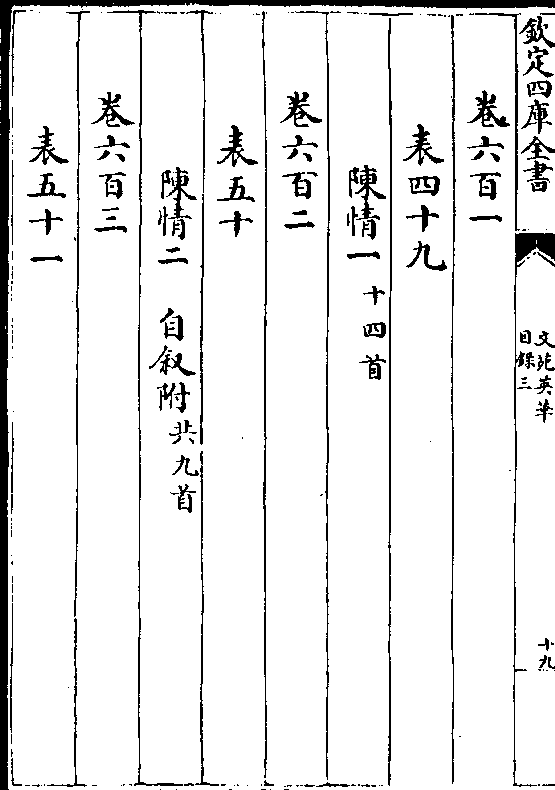 欽定四庫全書
文苑英華
目錄三
十九
卷六百一
表四十九
陳情一 十四首
卷六百二
表五十
陳情二 自叙附 共九首
卷六百三
表五十一